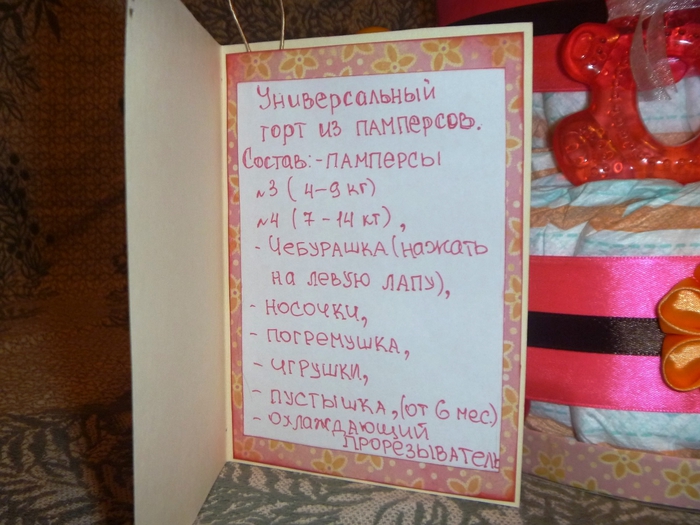 Универсальный
торт из памперсов.
Состав: - памперсы
№3 (4-9 кг)
№4 (7-14 кг),
- Чебурашка (нажать
на левую лапу),
- носочки,
- погремушка,
- игрушки,
- пустышка, (от 6 мес)
- охлаждающий
прорезыватель